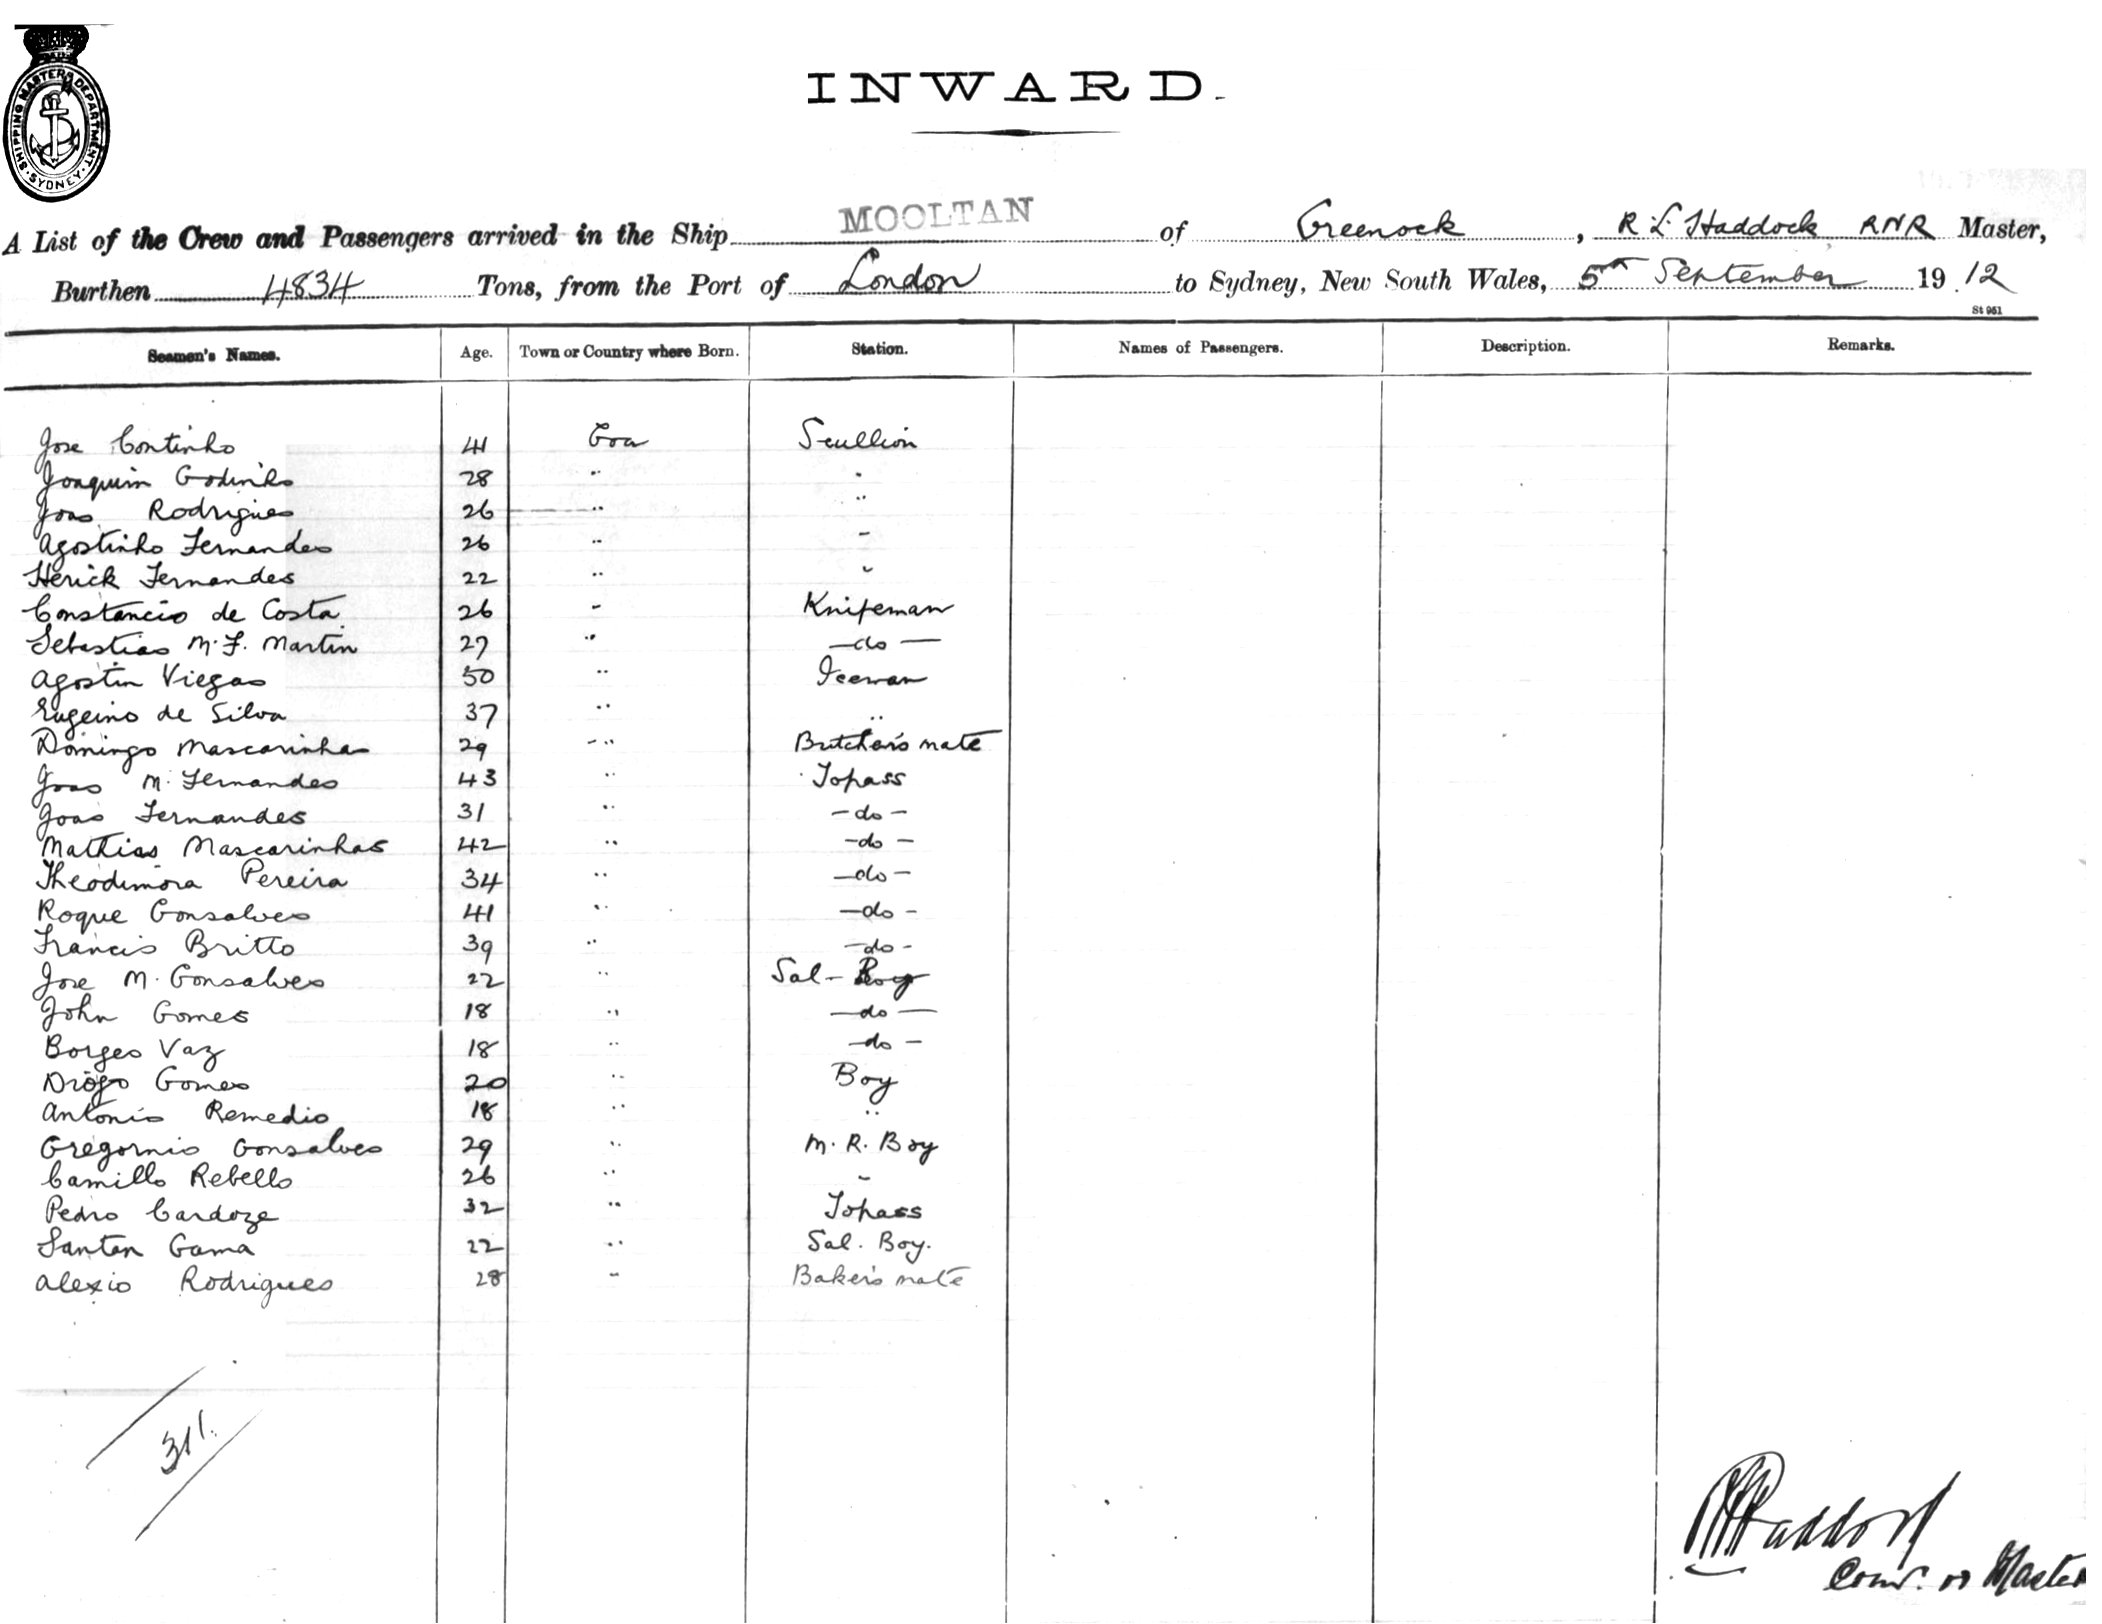 SHIPPING MASTERS DEPARTMENT. SYDNEY.
INWARD.
A List of the Crew and Passengers arrived in the Ship MOOLTAN of Greenock, R L Haddock RNR Master,
Burthen 4834 Tons, from the Port of London to Sydney, New South Wales, 5th September 1912
St 951
Seamen's Names. Age. Town or Country where Born. Station. Names of Passengers. Description. Remarks.
Jose Continho 41 Goa Scullion
Joaquim Godinho 28 " "
Joao Rodrigues 26 " "
Agostinho Fernandes 26 " "
Herick Fernandes 22 " "
Constancio de Costa 26 " Knifeman
Sebastiao M. F. Martin 27 " -do-
Agostin Viegas 50 " Iceman
Eugeino de Silva 37 " "
Domingo Mascarinhas 29 " Butcher's mate
Joao M. Fernandes 43 " Topass
Joao Fernandes 31 " -do-
Mathias Mascarinhas 42 " -do-
Theodimora Pereira 34 " -do-
Roque Gonsalves 41 " -do-
Francis Britto 39 " -do-
Jose M. Gonsalves 22 " Sal-Boy
John Gomes 18 " -do-
Borges Vaz 18 " -do-
Diogo Gomes 20 " Boy
Antonio Remedio 18 " "
Gregornio Gonsalves 29 " M. R. Boy
Camillo Rebello 26 " "
Pedro Cardoze 32 " Topass
Santan Gama 22 " Sal. Boy.
Alexio Rodrigues 28 " Baker's mate
311.
R L Haddock
Comr. or Master